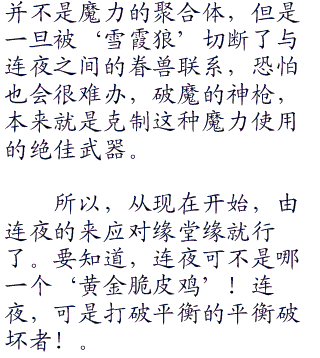 并不是魔力的聚合体，但是
一旦被‘雪霞狼’切断了与
连夜之间的眷兽联系，恐怕
也会很难办，破魔的神枪，
本来就是克制这种魔力使用
的绝佳武器。
所以，从现在开始，由
连夜的来应对缘堂缘就行
了。要知道，连夜可不是哪
一个‘黄金脆皮鸡’！连
夜，可是打破平衡的平衡破
坏者！。